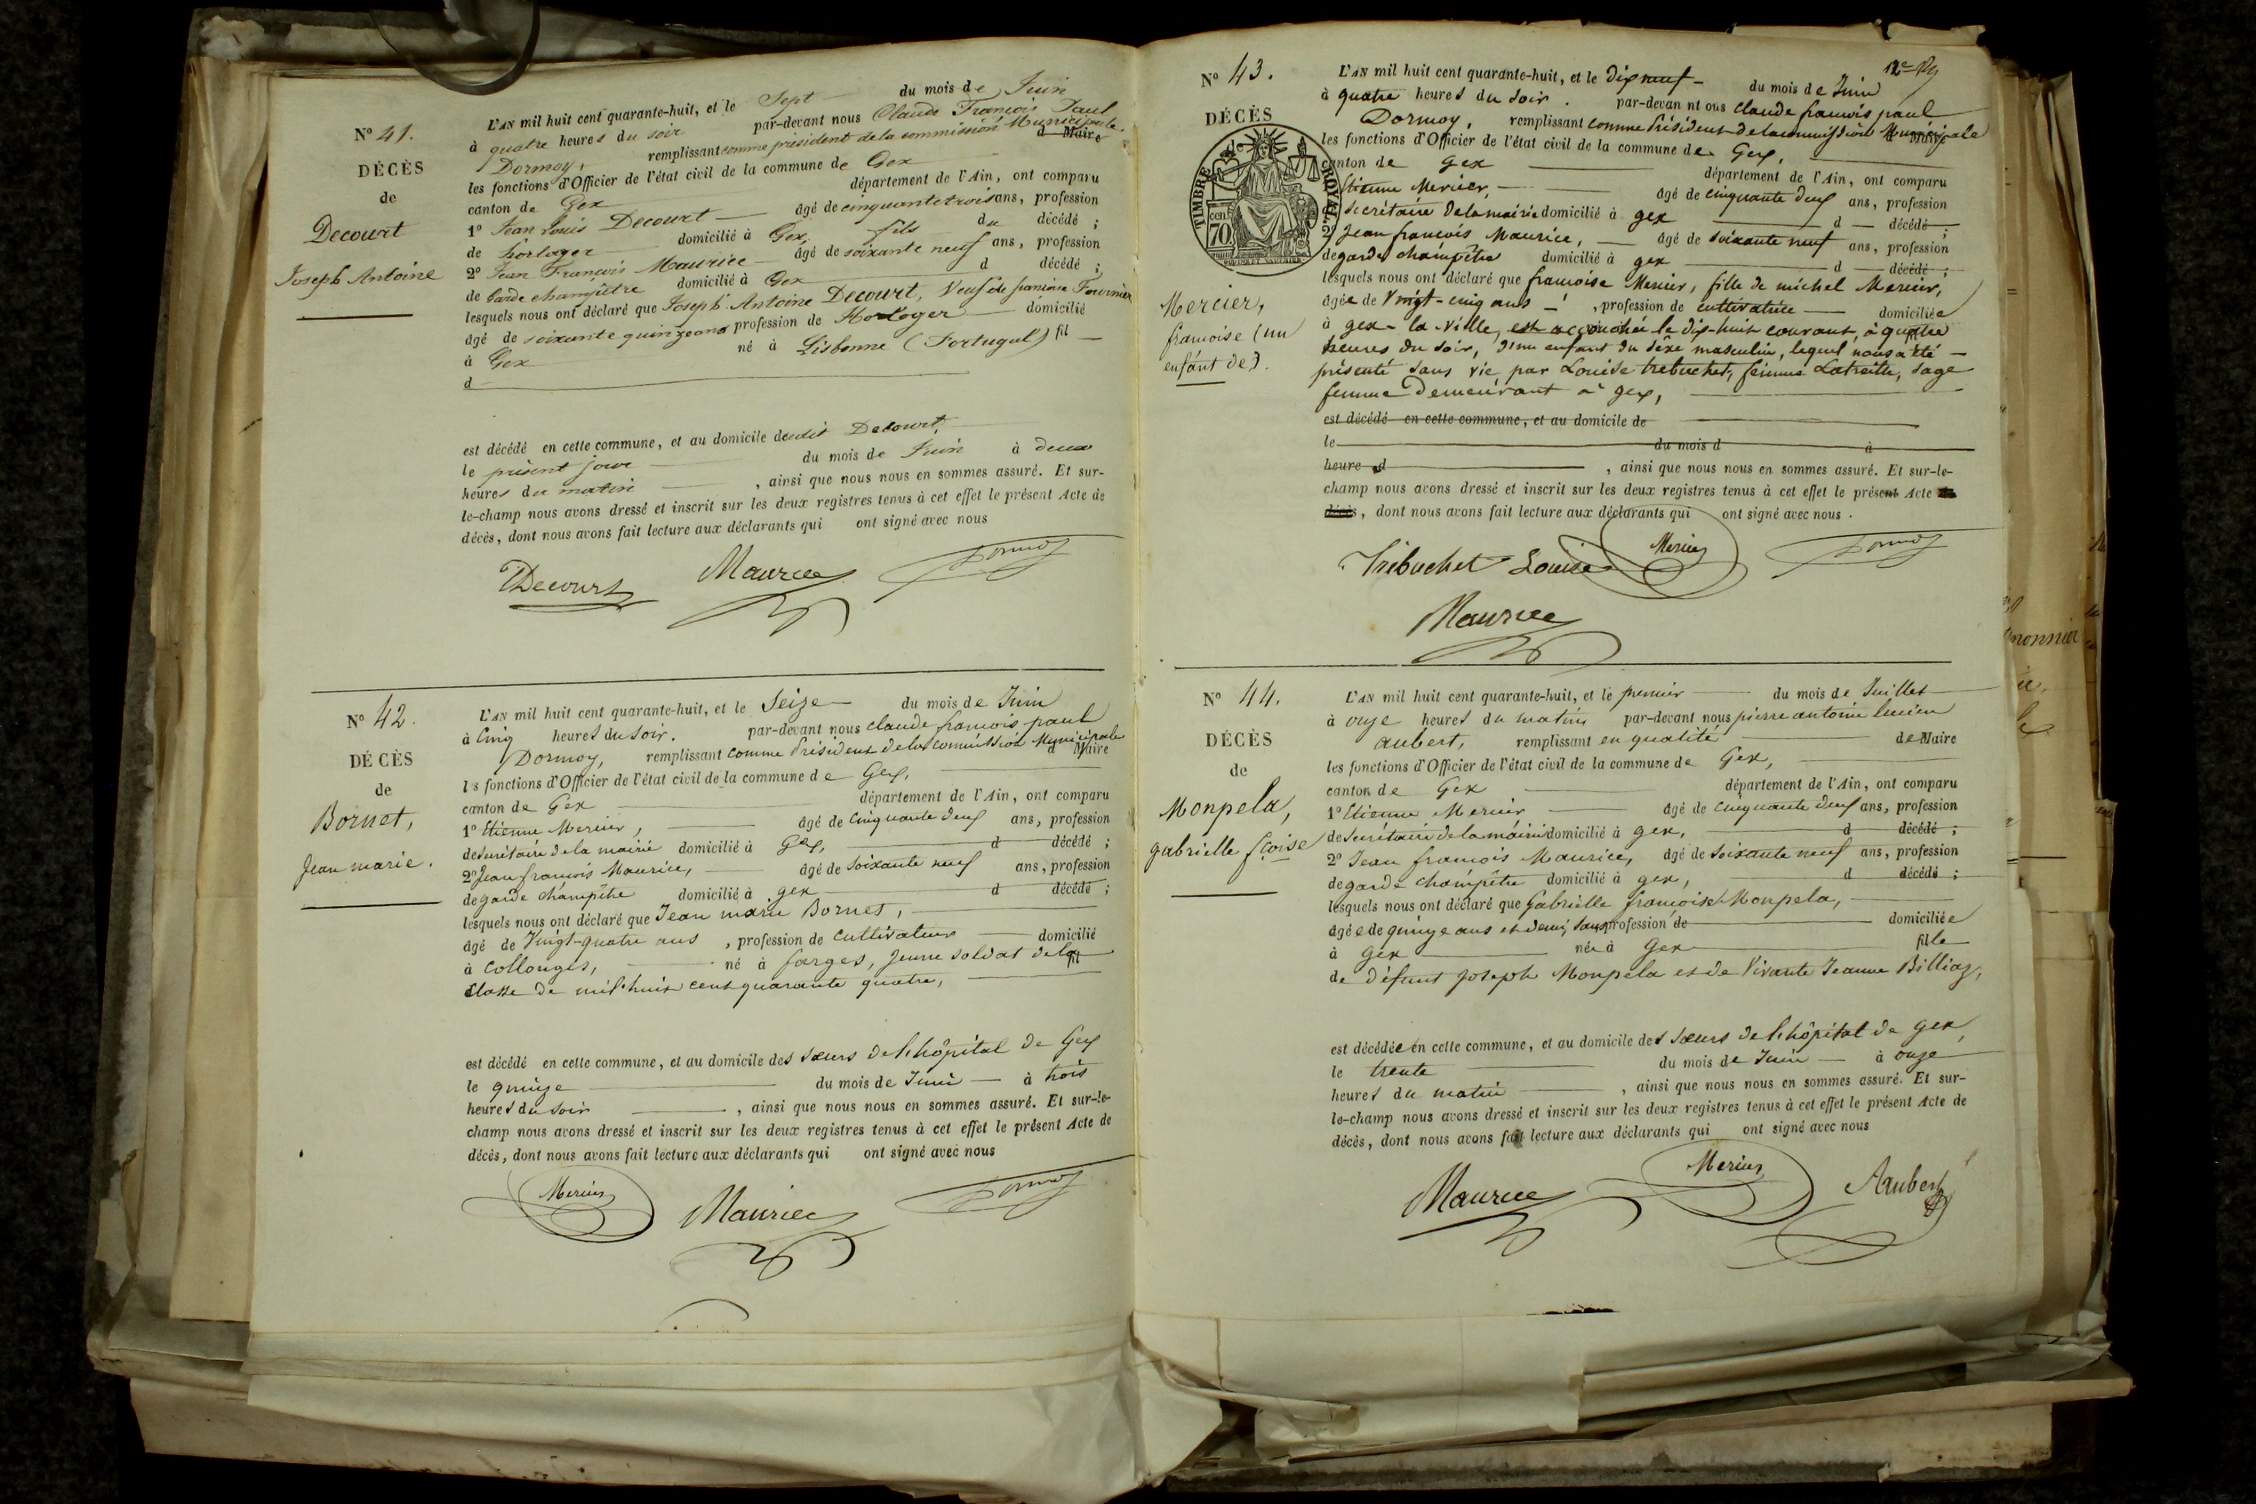 N° 41.
DÉCÈS
de
Decourt
Joseph Antoine
L'AN mil huit cent quarante-huit, et le Sept du mois de Juin
à quatre heures du soir par-devant nous Claude François Paul
Dormoy, remplissant comme président de la commission Municipale d Maire
les fonctions d'Officier de l'état civil de la commune de Gex
canton de Gex département de l'Ain, ont comparu
1° Jean Louis Decourt âgé de cinquante trois ans, profession
de horloger domicilié à Gex, fils du décédé ;
2° Jean François Maurice âgé de soixante neuf ans, profession
de Garde champêtre domicilié à Gex d décédé ;
lesquels nous ont déclaré que Joseph Antoine Decourt, Veuf de francoise Fournier
âgé de soixante quinze ans profession de Horloger domicilié
à Gex né à Lisbonne (Portugal) fil
d
est décédé en cette commune, et au domicile dudit Decourt,
le présent jour du mois de Juin à deux
heures du matin , ainsi que nous nous en sommes assuré. Et sur-
le-champ nous avons dressé et inscrit sur les deux registres tenus à cet effet le présent Acte de
décès, dont nous avons fait lecture aux déclarants qui ont signé avec nous
Decourt Maurice Dormoy
N° 42.
DÉCÈS
de
Bornet,
Jean marie.
L'AN mil huit cent quarante-huit, et le Seize du mois de Juin
à Cinq heures du soir. par-devant nous claude francois paul
Dormoy, remplissant comme Président de la Commission Municipale d Maire
les fonctions d'Officier de l'état civil de la commune de Gex,
canton de Gex département de l'Ain, ont comparu
1° Etienne Mercier, âgé de Cinquante deux ans, profession
de Secrétaire de la mairie domicilié à Gex, d décédé ;
2° Jean francois Maurice, âgé de Soixante neuf ans, profession
de garde champêtre domicilié à gex d décédé ;
lesquels nous ont déclaré que Jean marie Bornet,
âgé de Vingt-quatre ans , profession de Cultivateur domicilié
à Collonges, né à farges, Jeune soldat de la fil
Classe de mil huit cent quarante quatre,
est décédé en cette commune, et au domicile des sœurs de l'hôpital de Gex
le quinze du mois de Juin à trois
heures du soir , ainsi que nous nous en sommes assuré. Et sur-le-
champ nous avons dressé et inscrit sur les deux registres tenus à cet effet le présent Acte de
décès, dont nous avons fait lecture aux déclarants qui ont signé avec nous
Mercier Maurice Dormoy
N° 43.
DÉCÈS
de
TIMBRE ROYAL
70 cent
Mercier,
francoise (un
enfant de).
L'AN mil huit cent quarante-huit, et le dix neuf du mois de Juin
à quatre heures du soir. par-devan nt ous claude francois paul
Dormoy, remplissant comme Président de la commission Municipale d Maire
les fonctions d'Officier de l'état civil de la commune de Gex,
canton de gex département de l'Ain, ont comparu
Etienne Mercier, âgé de cinquante deux ans, profession
secrétaire de la mairie domicilié à gex d décédé ;
2° Jean francois Maurice, âgé de soixante neuf ans, profession
de garde champêtre domicilié à gex d décédé ;
lesquels nous ont déclaré que francoise Mercier, fille de michel Mercier,
âgée de Vingt-cinq ans , profession de cultivatrice domiciliée
à gex-la-ville, est accouchée le dix-huit courant, à quatre fil
heures du soir, d'un enfant du sexe masculin, lequel nous a été
présenté sans vie par Louise trebuchet, femme Latreille, sage
femme demeurant à gex,
est décédé en cette commune, et au domicile de
le du mois d à
heure d , ainsi que nous nous en sommes assuré. Et sur-le-
champ nous avons dressé et inscrit sur les deux registres tenus à cet effet le présent Acte de
décès, dont nous avons fait lecture aux déclarants qui ont signé avec nous.
Trébuchet Louise Mercier Dormoy
Maurice
N° 44.
DÉCÈS
de
Monpela,
gabrielle fçoise
L'AN mil huit cent quarante-huit, et le premier du mois de Juillet
à onze heures du matin par-devant nous pierre antoine lucien
aubert, remplissant en qualité de Maire
les fonctions d'Officier de l'état civil de la commune de Gex,
canton de Gex département de l'Ain, ont comparu
1° Etienne Mercier âgé de cinquante deux ans, profession
de Secrétaire de la mairie domicilié à gex, d décédé ;
2° Jean francois Maurice, âgé de soixante neuf ans, profession
de garde champêtre domicilié à gex, d décédé ;
lesquels nous ont déclaré que Gabrielle francoise Monpela,
âgée de quinze ans et demi, sans profession de domiciliée
à Gex née à Gex fille
de défunt Joseph Monpela et de Vivante Jeanne Billiaz,
est décédée en cette commune, et au domicile des sœurs de l'hôpital de gex,
le trente du mois de Juin à onze
heures du matin , ainsi que nous nous en sommes assuré. Et sur-
le-champ nous avons dressé et inscrit sur les deux registres tenus à cet effet le présent Acte de
décès, dont nous avons fait lecture aux déclarants qui ont signé avec nous
Maurice Mercier Aubert